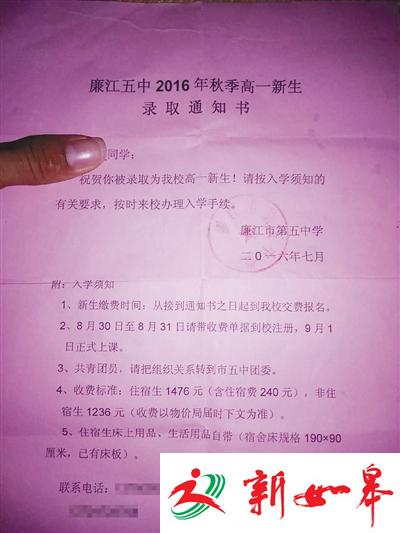 廉江五中2016年秋季高一新生
录取通知书
同学：
祝贺你被录取为我校高一新生！请按入学须知的
有关要求，按时来校办理入学手续。
廉江市第五中学
二〇一六年七月
附：入学须知
1、新生缴费时间：从接到通知书之日起到我校交费报名。
2、8月30日至8月31日请带收费单据到校注册，9月1
日正式上课。
3、共青团员，请把组织关系转到市五中团委。
4、收费标准：住宿生1476元（含住宿费240元），非住
宿生1236元（收费以物价局届时下文为准）。
5、住宿生床上用品、生活用品自带（宿舍床规格190×90
厘米，已有床板）。
联系电话：
新如皋